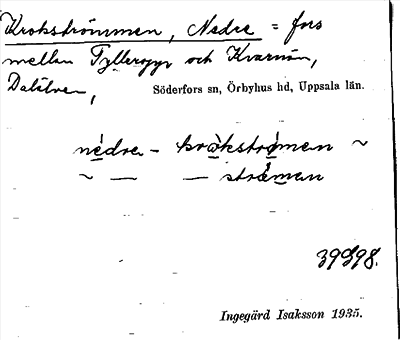 Krokströmmen, Nedre = fors
mellan Tyllerggr och Kvarnön,
Dalälven, Söderfors sn, Örbyhus hd, Uppsala län.
nèdre - kròkstrǿmen ~
~ — — strǿmen
39398.
Ingegärd Isaksson 1935.